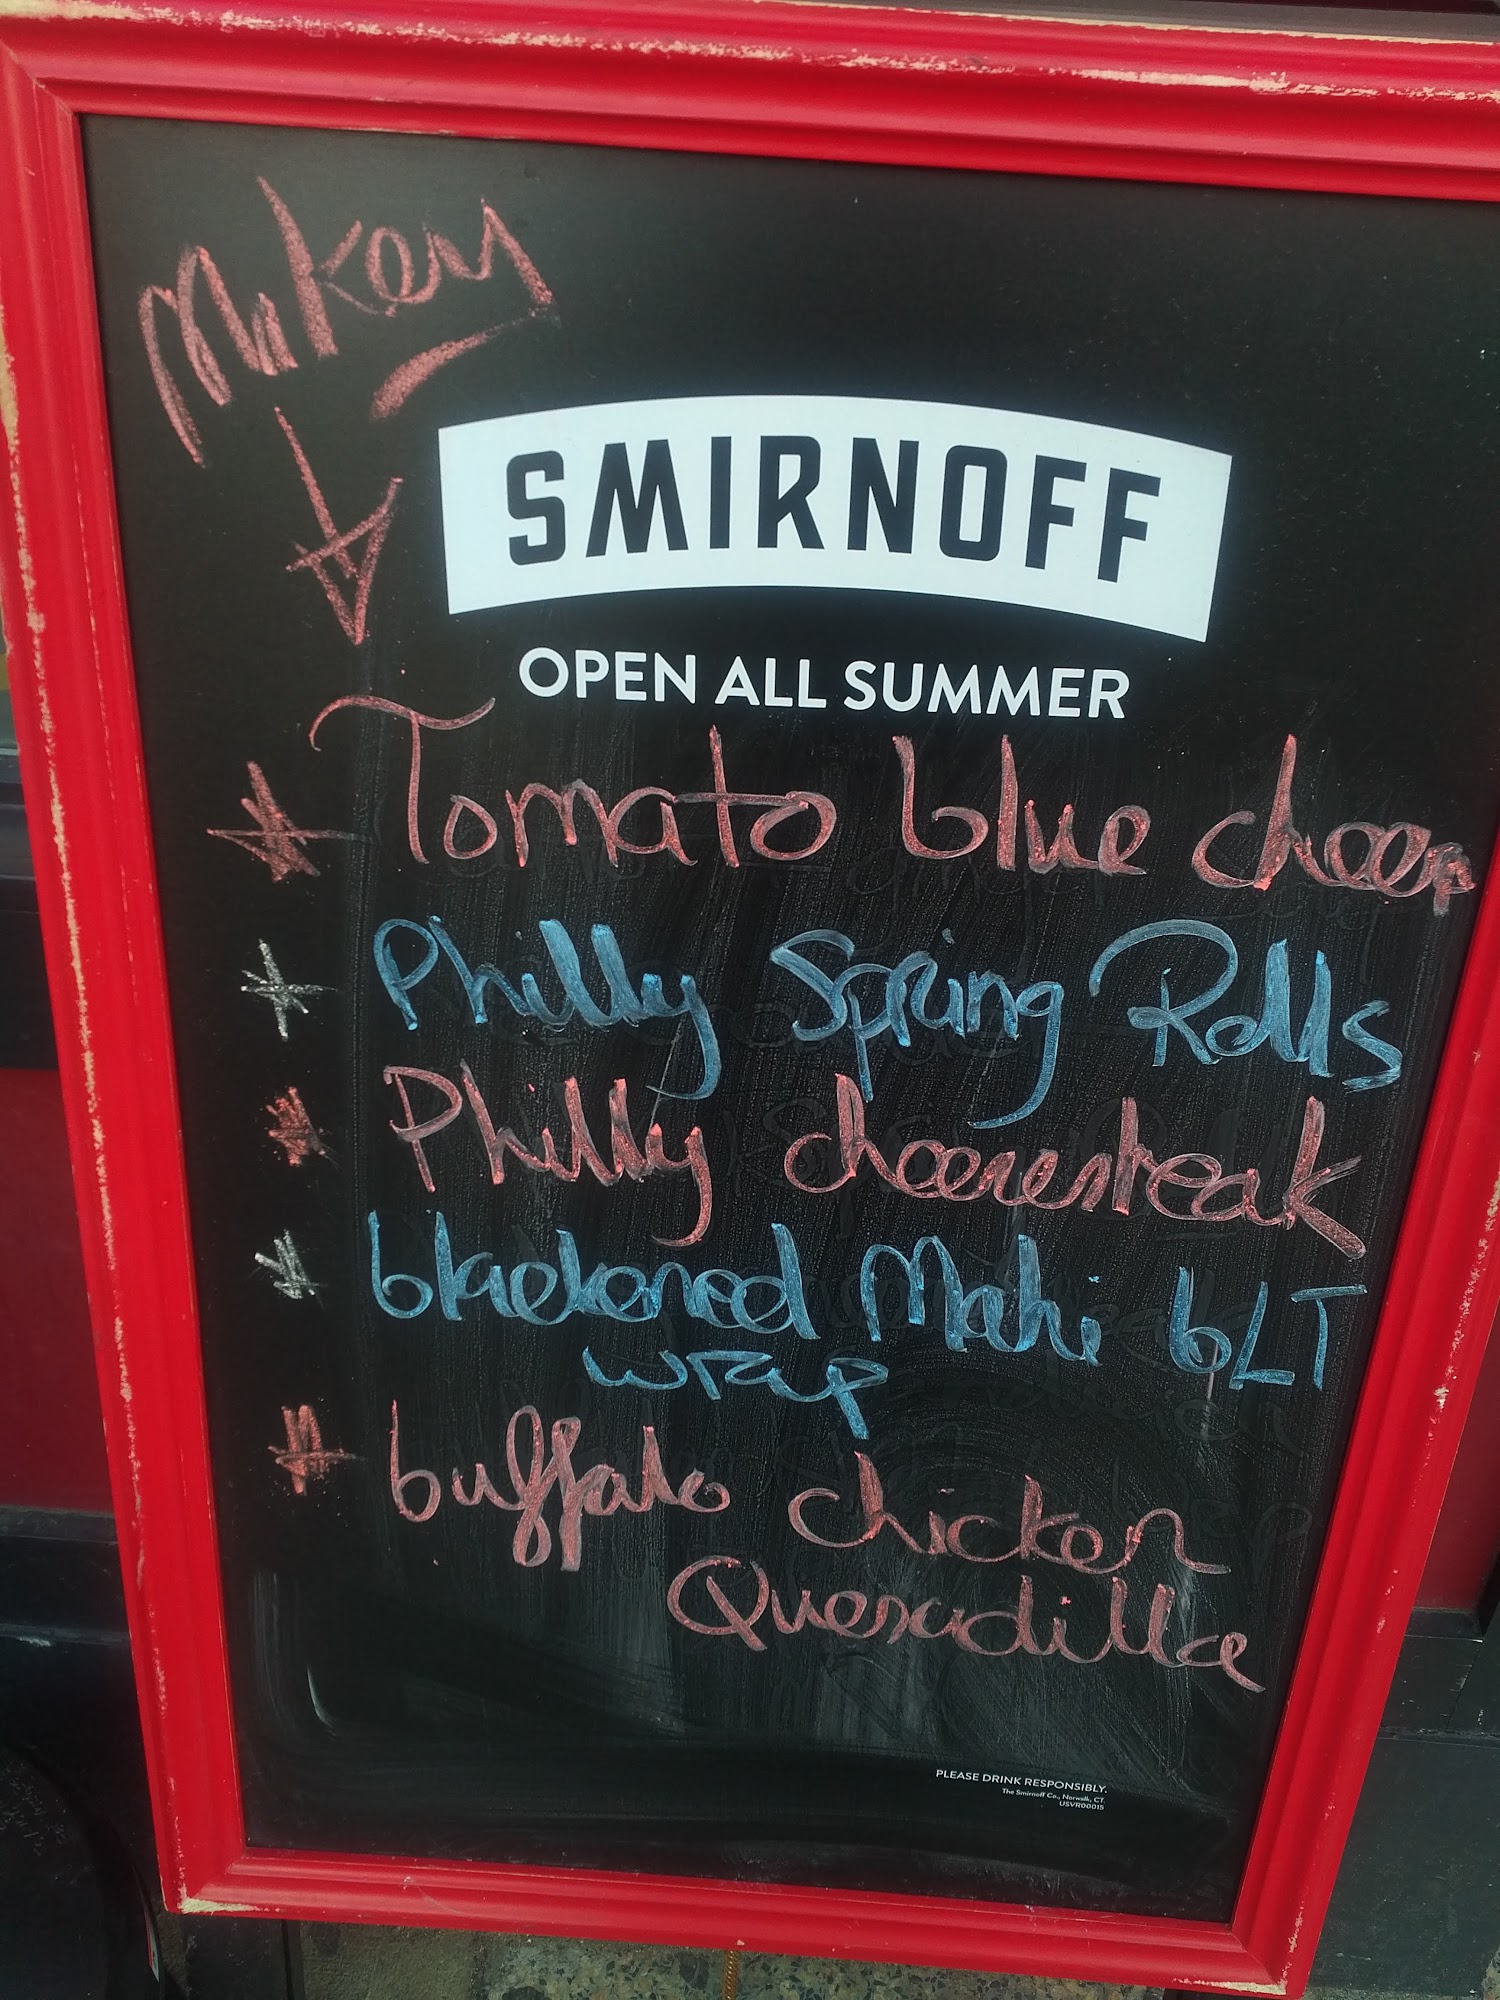 Mikey
SMIRNOFF
OPEN ALL SUMMER
Tomato blue cheese
Philly Spring Rolls
Philly cheesesteak
blackened Mahi bLT
wrap
buffalo chicken
Quesadilla
PLEASE DRINK RESPONSIBLY.
The Smirnoff Co., Norwalk, CT.
USVR00015